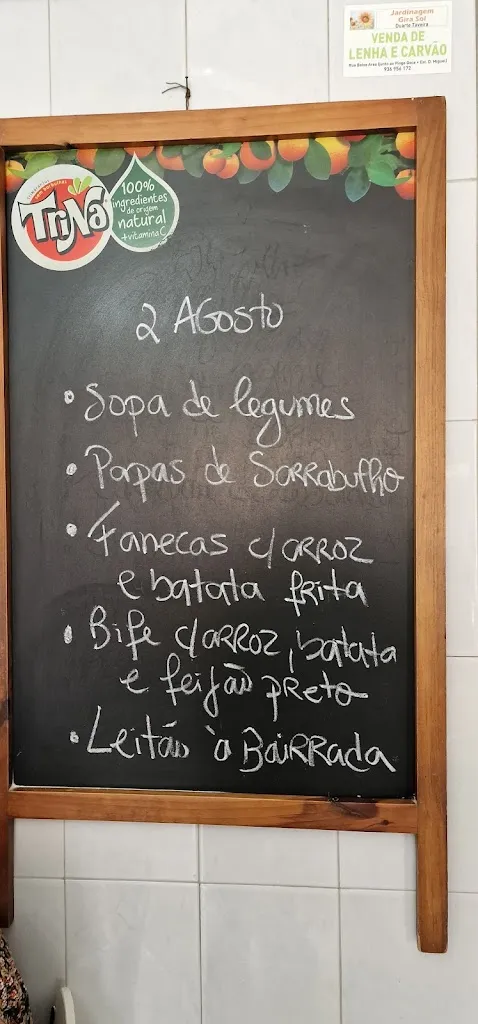 Jardinagem
Gira Sol
Duarte Taveira
VENDA DE
LENHA E CARVÃO
936 956 173
TriNa
100%
ingredientes
de origem
natural
+vitamina C
2 AGosto
• Sopa de legumes
• Papas de SARRabulho
• Fanecas c/ ARROZ
e batata frita
• Bife c/ARROZ, batata
e feijão preto
• Leitão à BaiRRada